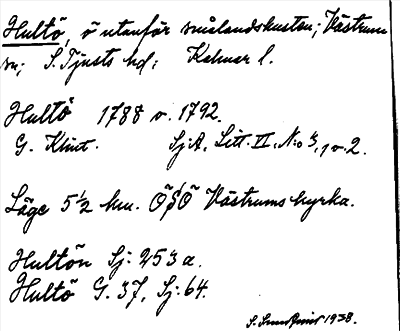 Hultö, ö utanför smålandskusten; Västrums
sn; S. Tjusts hd; Kalmar l.
Hultö 1788 o. 1792.
G. Klint. Sj.A. Litt. II, N:o 3, 1 o. 2.
Läge 5 1/2 km. ÖSÖ Västrums kyrka.
Hultön Sj: 253 a.
Hultö G. 37, Sj: 64.
S. 1938.